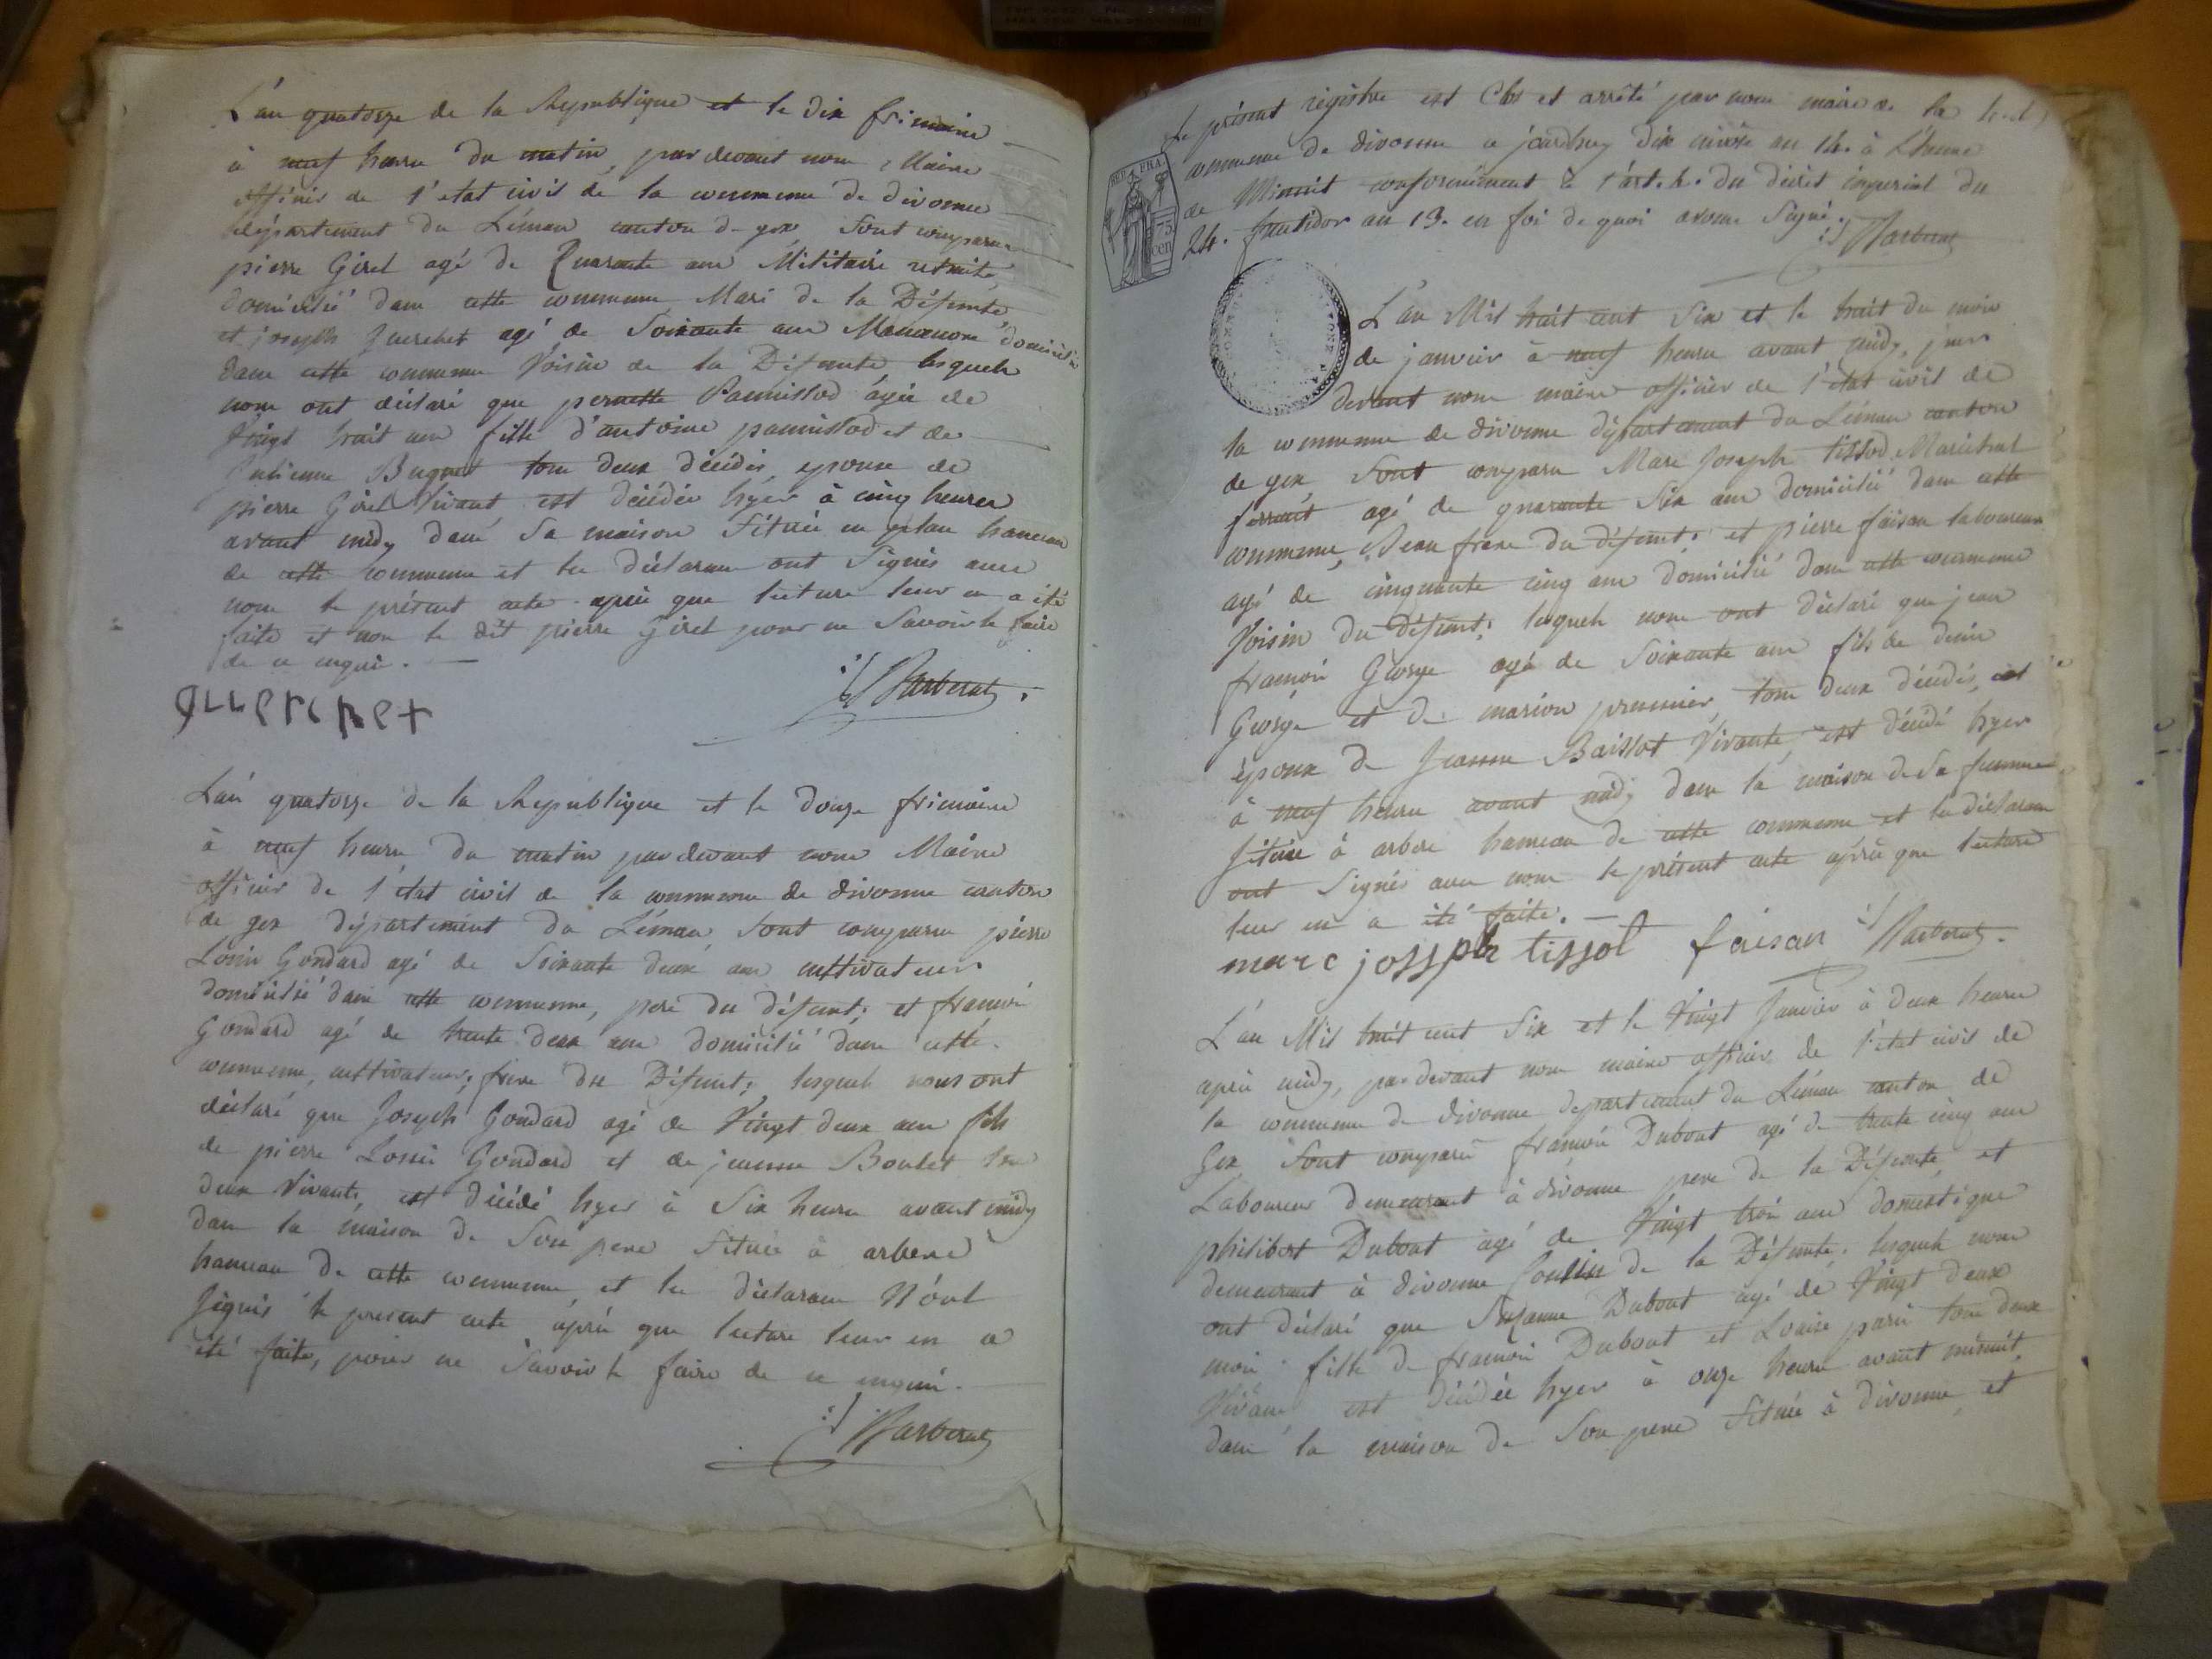 L'an quatorze de la Republique et le dix frimaire
à neuf heures du matin, par devant nous Maire
officier de l'etat civil de la commune de divonne
département du Léman canton de gex sont comparu
pierre Girel agé de Quarante ans Militaire retraité
domicilié dans cette commune Mari de la Défunte
et joseph Querchet agé de Soixante ans domicilié
dans cette commune Voisin de la Défunte, lesquels
nous ont déclaré que pernette Pannissod agée de
Vingt huit ans fille d'antoine pannissod et de
Julienne Buquet tous deux décédés, epouse de
pierre Girel Vivant est décédée hyer à cinq heures
avant midy dans Sa maison Située en plan hameau
de cette commune et les déclarans ont Signés avec
nous le présent acte après que lecture leur en a été
faite et non le dit pierre Girel pour ne Savoir le faire
de ce enquis.
querchet
Barberat
L'an quatorze de la Republique et le douze frimaire
à neuf heures du matin par devant nous Maire
officier de l'etat civil de la commune de divonne canton
de gex département du Léman, sont comparu pierre
Louis Gondard agé de Soixante deux ans cultivateur
domicilié dans cette commune, pere du défunt; et francois
Gondard agé de trente deux ans domicilié dans cette
commune, cultivateur; frere du Défunt; lesquels nous ont
déclaré que Joseph Gondard agé de Vingt deux ans fils
de pierre Louis Gondard et de jeanne Boulet tous
deux Vivants, est décédé hyer à Six heures avant midy
dans la maison de Son pere Située à arbere
hameau de cette commune, et les déclarans N'ont
Signés le present acte après que lecture leur en a
été faite, pour ne Savoir le faire de ce enquis.
Barberat
Le présent régistre est Clos et arrêté par nous maire de la
commune de divonne ce jourdhuy dix nivôse an 14. à L'heure
de Minuit conformément à l'art. du décret imperial du
24. fructidor an 13. en foi de quoi avons Signé.
Barberat
REP. FRA.
75
cen
L'an Mil huit cent Six et le huit du mois
de janvier à neuf heures avant midy, par
devant nous maire officier de l'etat civil de
la commune de divonne département du Léman canton
de gex Sont comparu Marc Joseph tissod Maréchal
ferrant agé de quarante Six ans domicilié dans cette
commune, Beau frere du défunt; et pierre faisan laboureur
agé de cinquante cinq ans domicilié dans cette commune
Voisin du Défunt; lesquels nous ont déclaré que jean
francois George agé de Soixante ans fils de denis
George et de marion prunier, tous deux décédés, et
époux de Jeanne Baissot Vivante, est décédé hyer
à neuf heures avant midy dans la maison de Sa femme
Située à arbere hameau de cette commune et les déclarans
ont Signés avec nous le présent acte après que lecture
leur en a été faite.
marc josspbr tissot faisan Barberat
L'an Mil huit cent Six et le Vingt Janvier à deux heures
après midy, par devant nous maire officier de l'etat civil de
la commune de divonne departement du Léman canton de
Gex Sont comparu francois Dubout agé de trente cinq ans
Laboureur demeurant à divonne pere de la Défunte, et
philibert Dubout agé de Vingt trois ans domestique
demeurant à divonne Cousin de la Défunte. lesquels nous
ont déclaré que Suzanne Dubout agé de Vingt deux
mois fille de francois Dubout et Louise paris tous deux
Vivans est décédée hyer à onze heures avant minuit,
dans la maison de Son pere Située à divonne, et